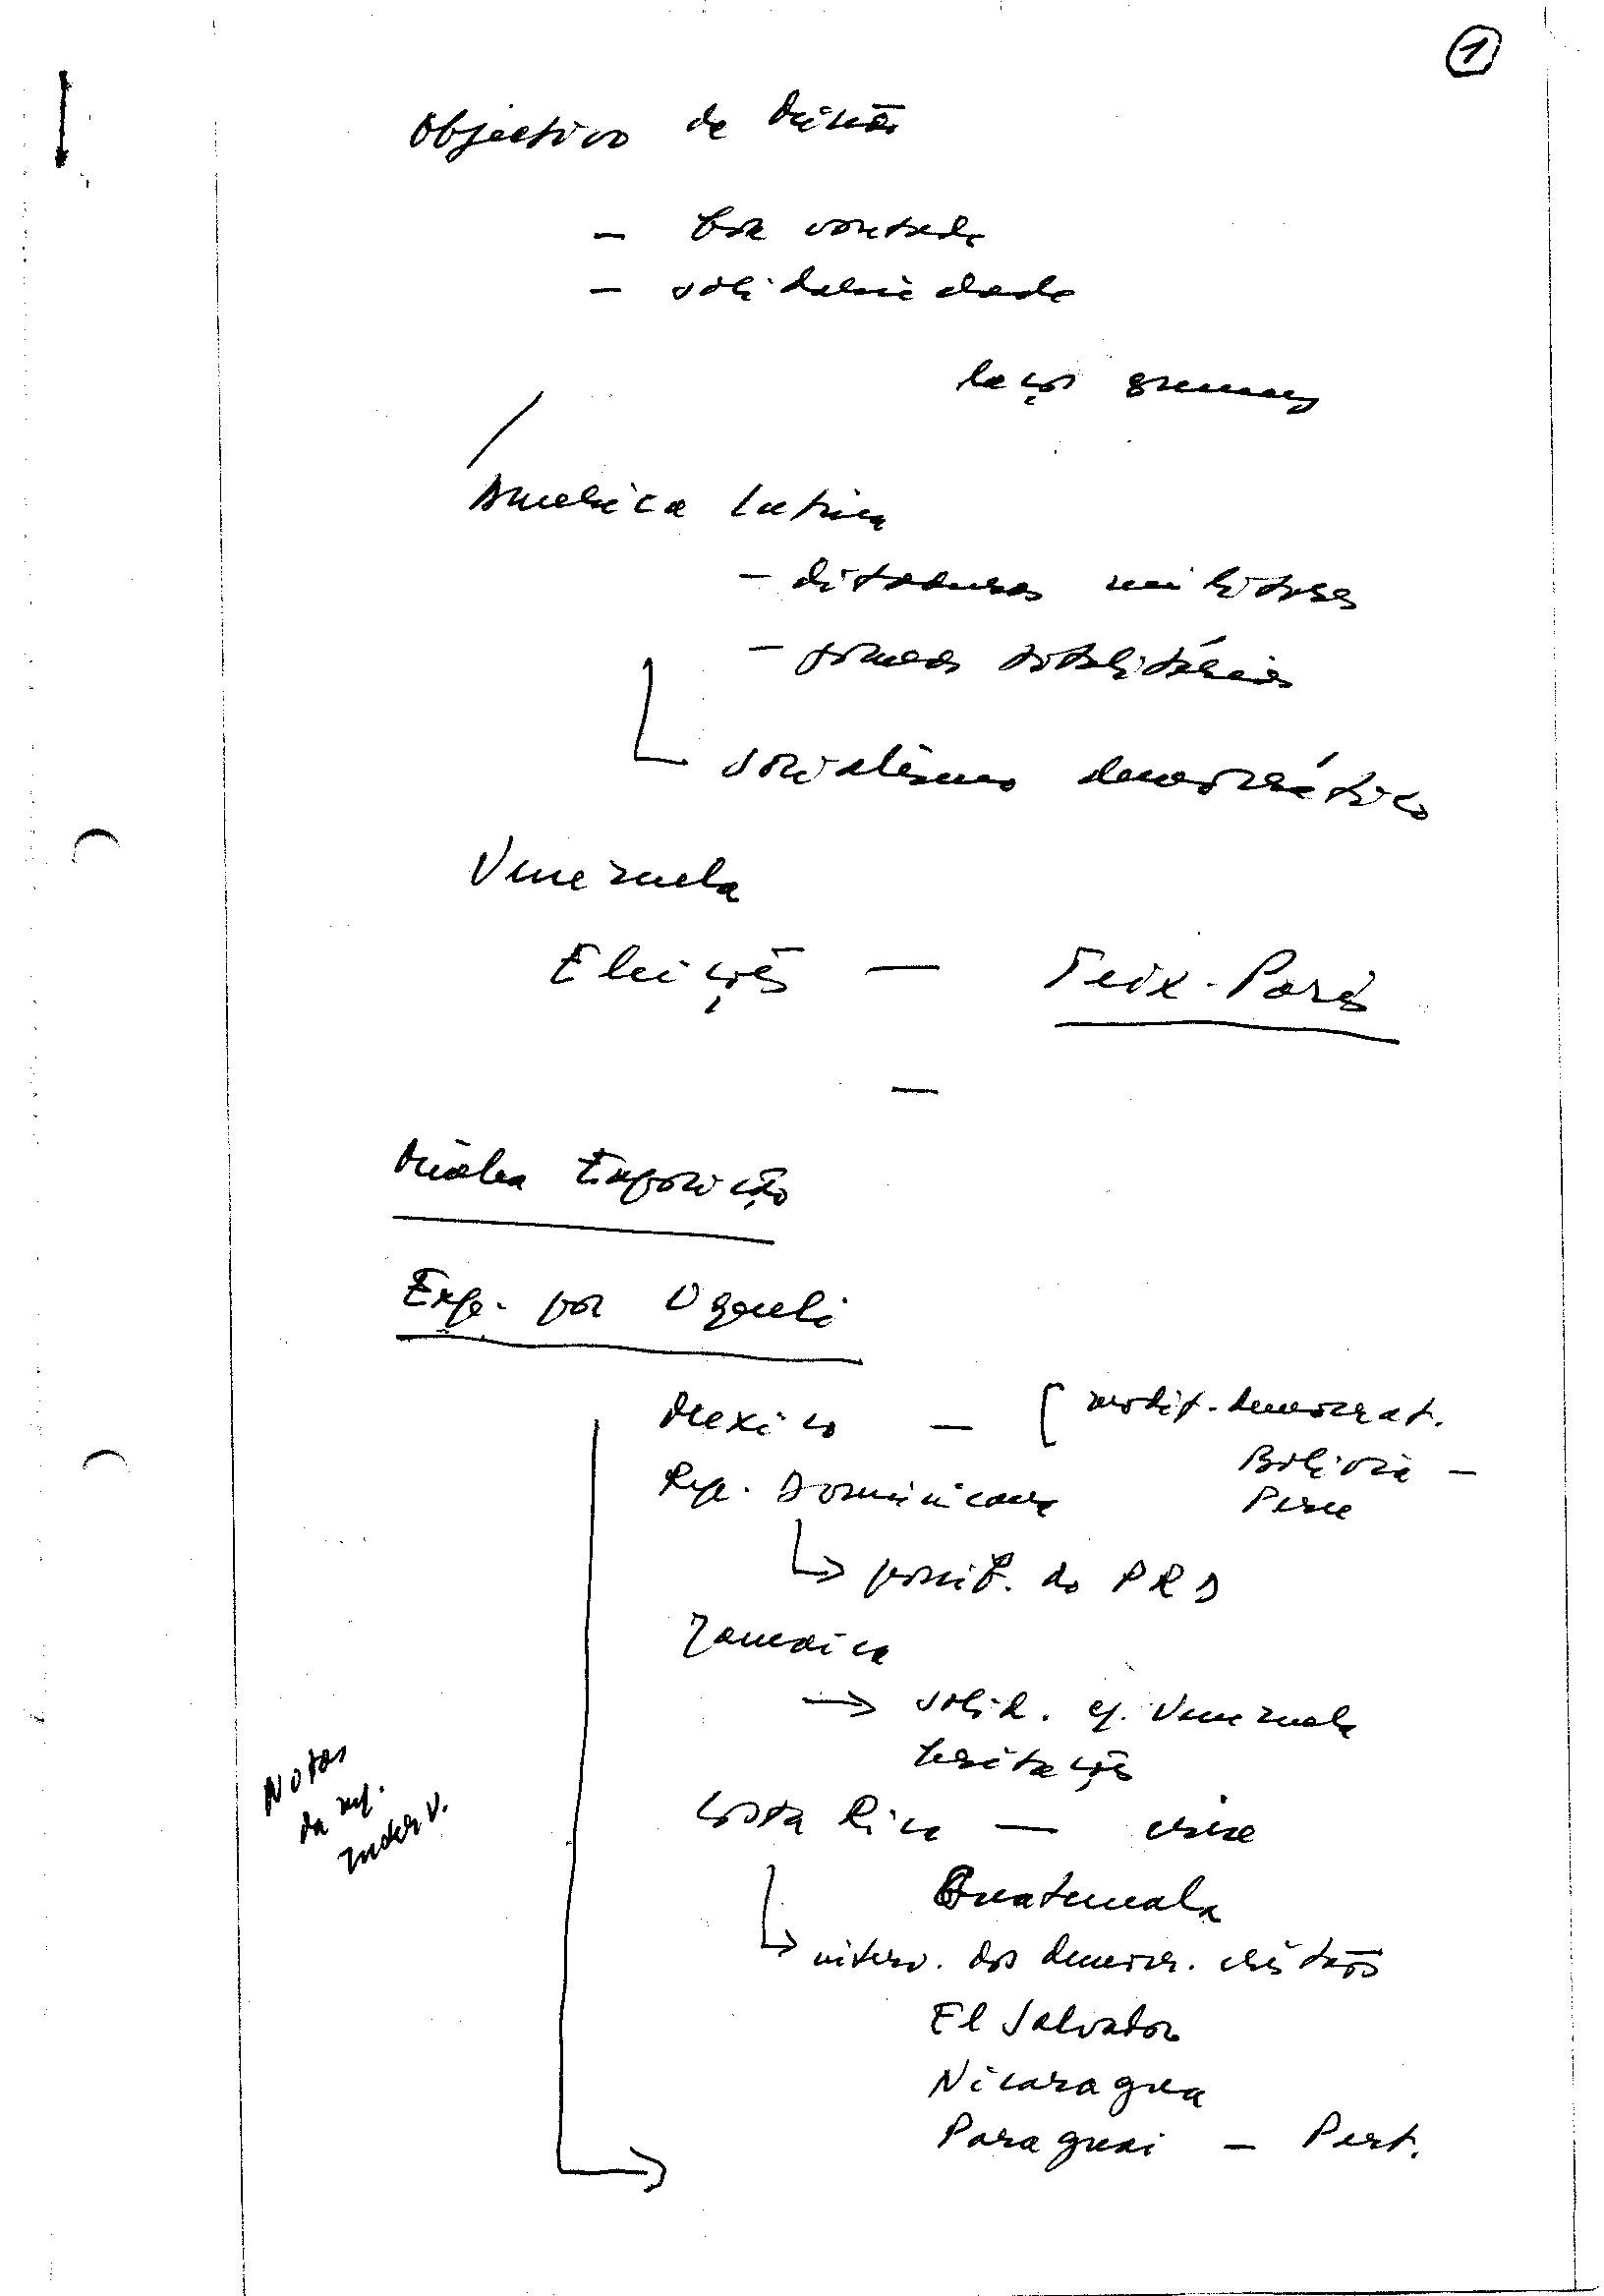 1
Objectivo da Missão
- boa vontade
- solidariedade
laços
América Latina
- ditaduras militares
- formas totalitárias
socialismo democrático
Venezuela
Eleições -
-
Exposição
Exp. por Ungueli
Mexico - [ democrat.
Bolivia -
Peru
Rep. Dominicana
→ posit. do PRD
Jamaica
→ solid. c/. Venezuela
hesitações
Costa Rica - crise
Guatemala
→ interv. dos democr. cristãos
El Salvador
Nicaragua
Paraguai - Pert.
Notas
da